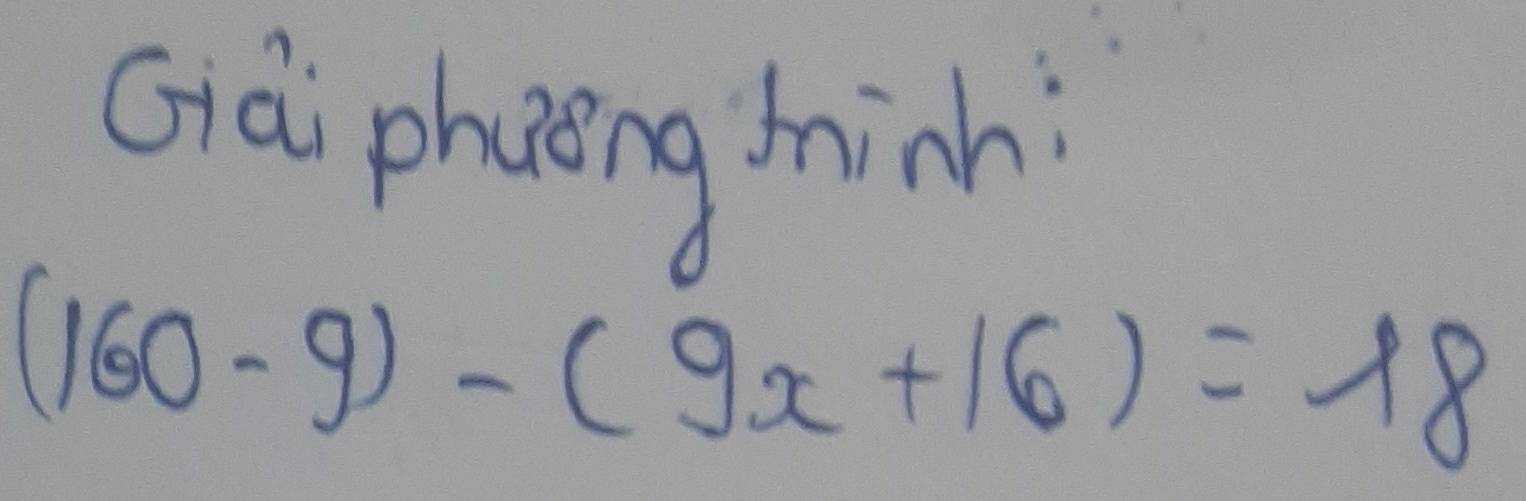 Giải phương trình:
(160 - 9) - ( 9x + 16 ) = 18